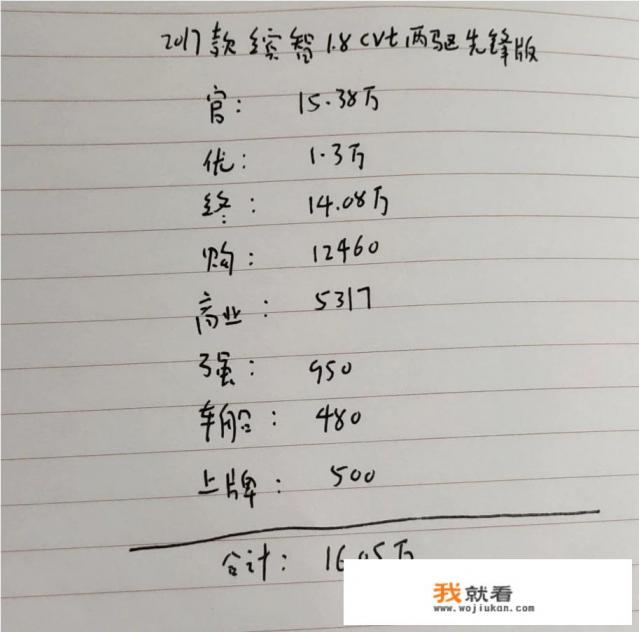 2017款缤智1.8cvt两驱先锋版
官: 15.38万
优: 1.3万
终: 14.08万
购: 12460
商业: 5317
强: 950
车船: 480
上牌: 500
合计: 16.05万
我就看
www.wojiukan.com